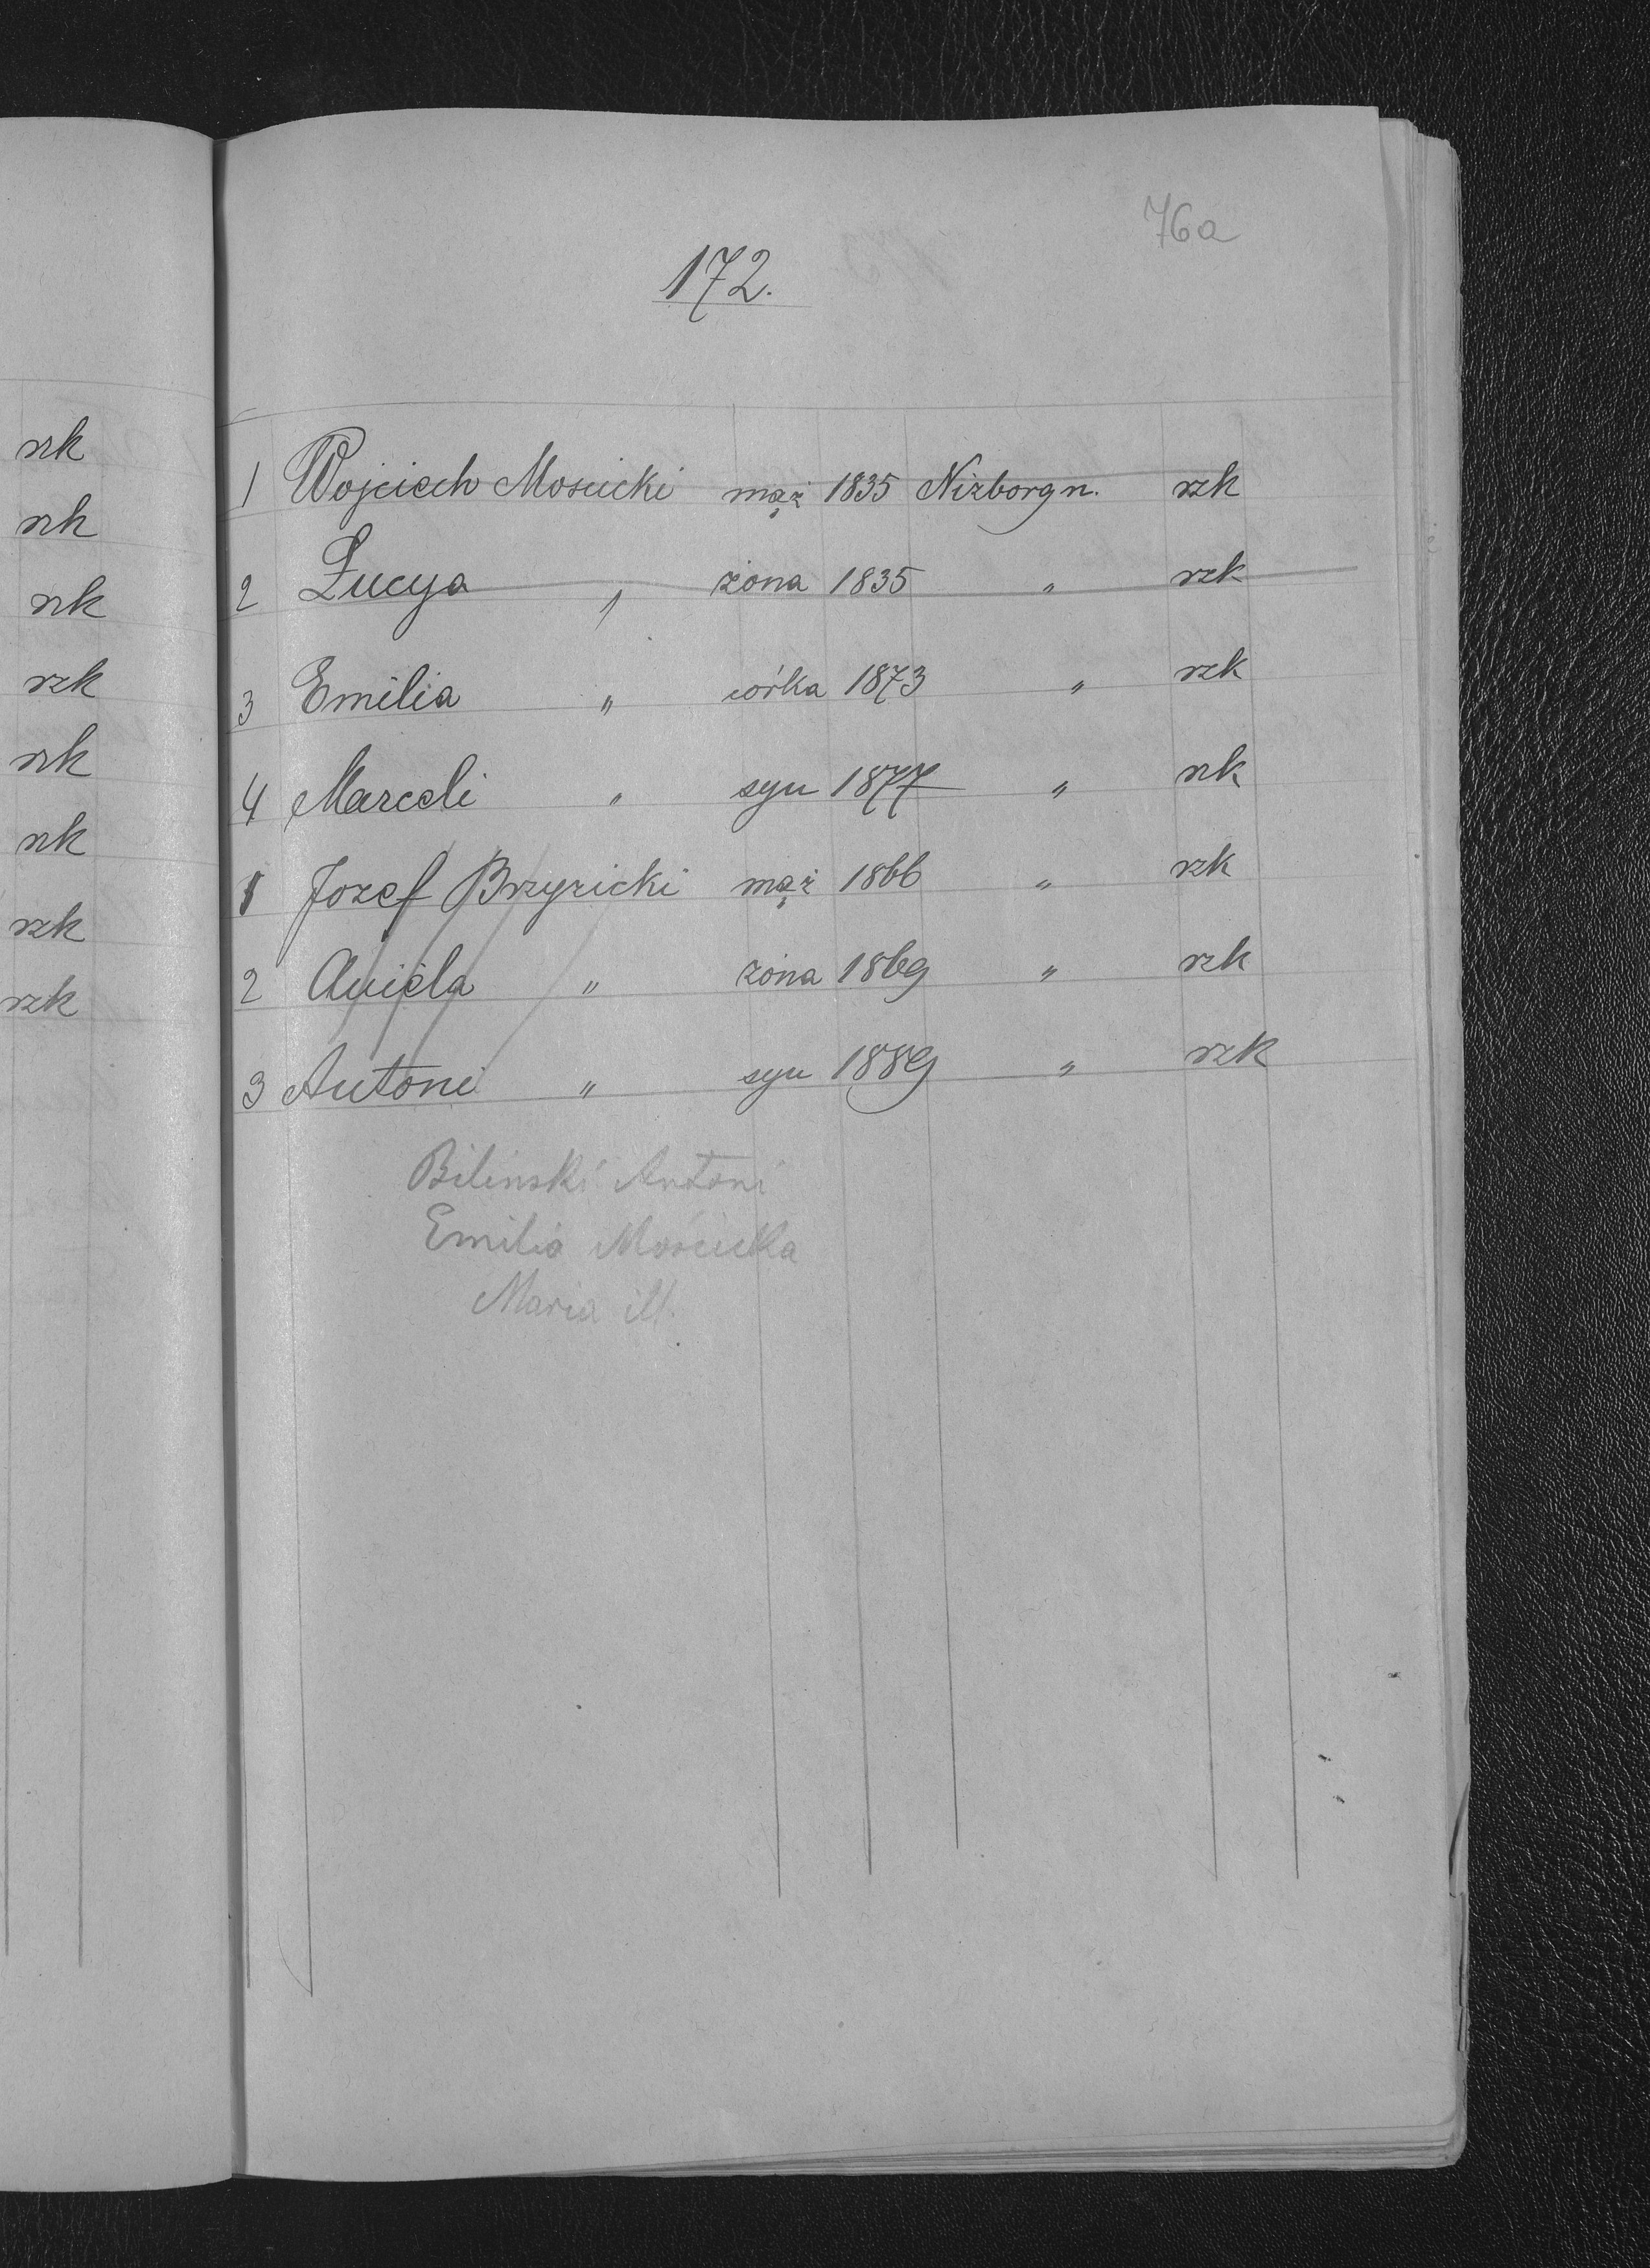 76a
172.
rzk
rzk
rzk
rzk
rzk
rzk
rzk
rzk
1 Wojciech Moscicki mąż 1835 Niżborg n. rzk
2 Łucya " żona 1835 " rzk
3 Emilia " córka 1873 " rzk
4 Marceli " syn 1877 " rzk
1 Jozef Brzyzicki mąż 1866 " rzk
2 Aniela " żona 1869 " rzk
3 Antoni " syn 1889 " rzk
Bilinski Antoni
Emilia Mościcka
Maria ill.